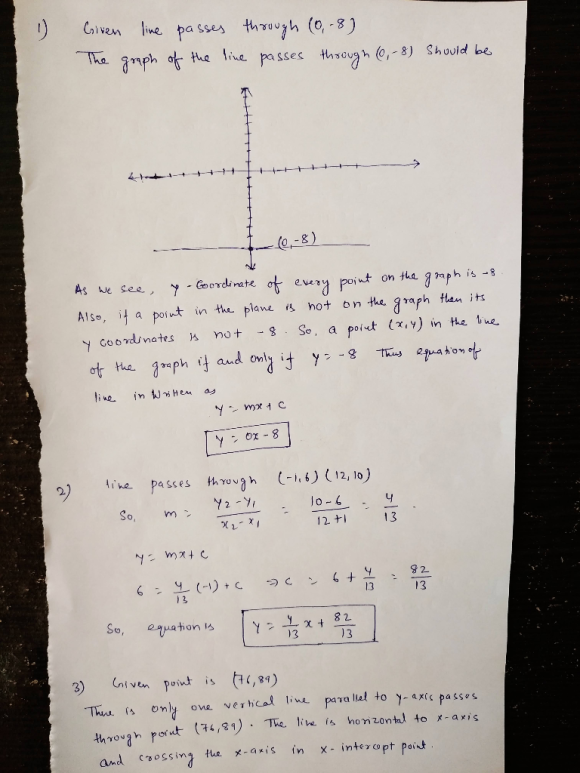 1) Given line passes through (0, -8)
The graph of the line passes through (0, -8) should be
(0, -8)
As we see, y - Coordinate of every point on the graph is -8.
Also, if a point in the plane is not on the graph then its
y coordinates is not -8. So, a point (x, y) in the line
of the graph if and only if y = -8 Thus equation of
line in written as
y = mx + c
y = 0x - 8
2) line passes through (-1, 6) (12, 10)
So, m = y2 - y1 / x2 - x1 = 10 - 6 / 12 + 1 = 4/13.
y = mx + c
6 = 4/13 (-1) + c => c = 6 + 4/13 = 82/13
So, equation is y = 4/13 x + 82/13
3) Given point is (76, 89)
There is only one vertical line parallel to y-axis passes
through point (76, 89). The line is horizontal to x-axis
and crossing the x-axis in x-intercept point.